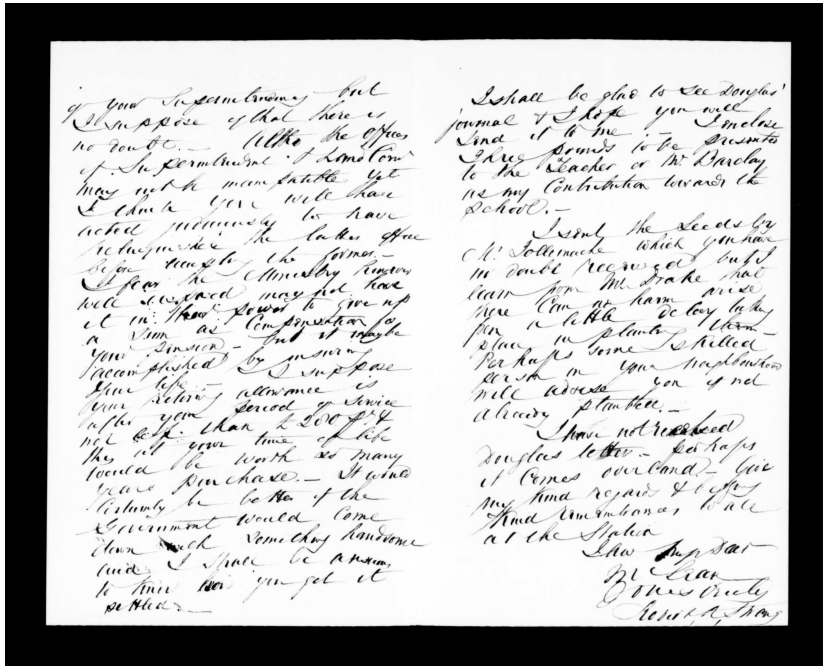 of your Superintendency but
I suppose of that there is
no doubt. — Altho the offices
of Superintendent & Land Comr
may not be incompatible yet
I think you will have
acted judiciously to have
relinquished the latter office
before accepting the former. —
I fear the Ministry however
well disposed may not have
it in their power to give up
a Sum as Compensation for
your Pension — but it may be
accomplished by insuring
your life. — I suppose
your retiring allowance is
after your period of Service
not less than £200 &
this at your time of life
would be worth so many
years purchase. — It would
certainly be better if the
Government would come
down with something handsome
and I shall be anxious
to know how you get it
settled. —
I shall be glad to see Douglas'
journal & I hope you will
send it to me. — I enclose
Three pounds to be presented
to the Teacher or Mr. Barclay
as my Contribution towards the
School. —
I sent the Seeds by
Mr. Tollemache which you have
no doubt received but I
learn from Mr. Drake that
there can no harm arise
from a little delay taking
place in planting them —
Perhaps some skilled
person in your neighbourhood
will advise you if not
already planted. —
I have not received
Douglas letter — perhaps
it comes overland — Give
my kind regards &
kind remembrances to all
at the Station
I am my Dear
McLean
Yours truly
Robert R. Strang